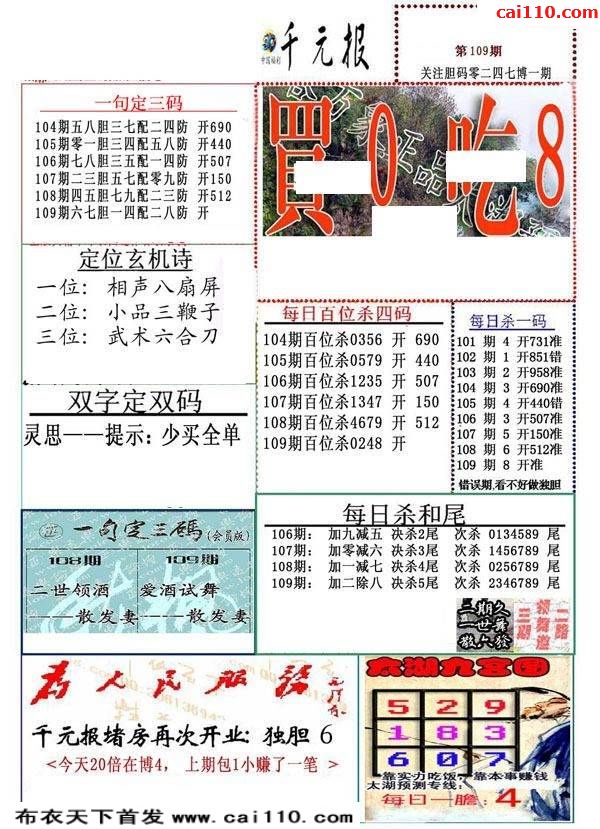 cai110.com
中国福彩
千元报
第109期
关注胆码零二四七博一期
一句定三码
104期五八胆三七配二四防 开690
105期零一胆三四配五八防 开440
106期七八胆三五配一四防 开507
107期二三胆五七配零九防 开150
108期四五胆七九配二三防 开512
109期六七胆一四配二八防 开
買0吃8
定位玄机诗
一位: 相声八扇屏
二位: 小品三鞭子
三位: 武术六合刀
每日百位杀四码
104期百位杀0356 开 690
105期百位杀0579 开 440
106期百位杀1235 开 507
107期百位杀1347 开 150
108期百位杀4679 开 512
109期百位杀0248 开
每日杀一码
101 期 4 开731准
102 期 1 开851错
103 期 2 开958准
104 期 3 开690准
105 期 4 开440错
106 期 3 开507准
107 期 5 开150准
108 期 6 开512准
109 期 8 开准
错误期,看不好做独胆
双字定双码
灵思——提示: 少买全单
一句定三碼(会员版)
108期 109期
二世领酒 爱酒试舞
——散发妻 ——散发妻
每日杀和尾
106期: 加九减五 决杀2尾 次杀 0134589 尾
107期: 加零减六 决杀3尾 次杀 1456789 尾
108期: 加一减七 决杀4尾 次杀 0256789 尾
109期: 加二除八 决杀5尾 次杀 2346789 尾
为人民服务
千元报堵房再次开业: 独胆 6
<今天20倍在博4, 上期包1小赚了一笔 >
太湖九宫图
5 2 9
1 8 3
6 0 7
靠实力吃饭, 靠本事赚钱
太湖预测专线:
每日一胆: 4
布衣天下首发 www.cai110.com